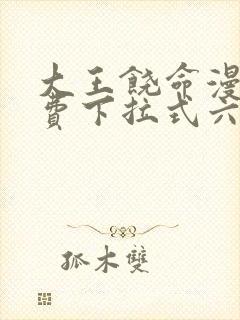 大王饶命漫
费下拉式六
孤木雙